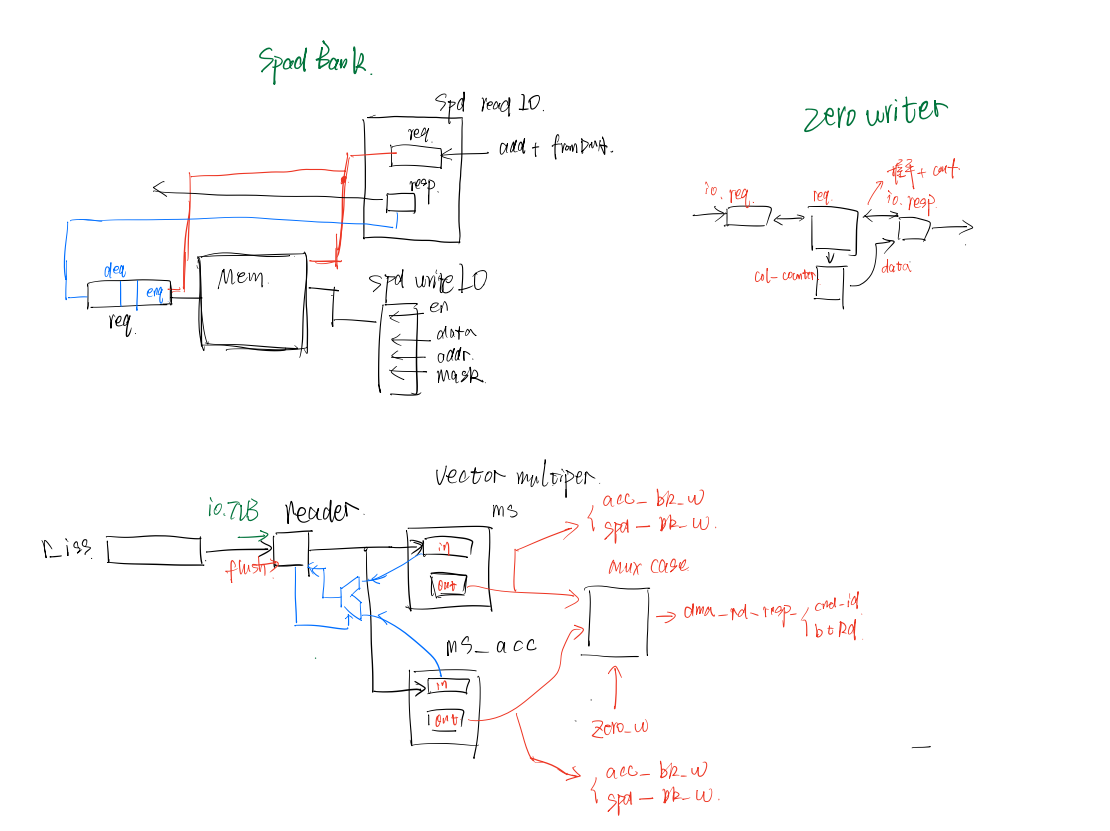 Spad Bank.
spd read IO.
req.
add + fromDMA.
resp.
deq
enq
req.
Mem.
spd write IO
en
data
addr.
mask.
zero writer
io.req
req
+ cont.
io.resp
col-counter
data
vector multiper.
io.TLB
reader.
r_iss
flush
ms
in
out
ms_acc
in
out
acc_bk_w
spd_bk_w.
mux case
dma_rd_resp
cmd_id
btRd
zero_w
acc_bk_w
spd_bk_w.